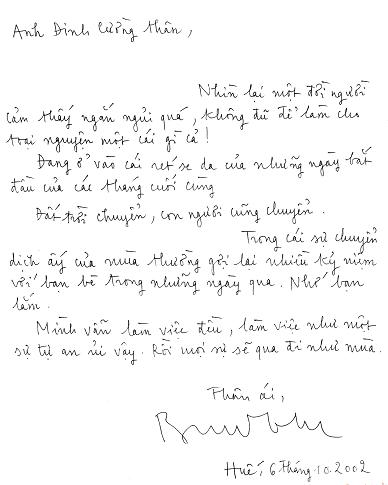 Anh Đinh Cường thân,
Nhìn lại một đời người
cảm thấy ngắn ngủi quá, không đủ để làm cho
toại nguyện một cái gì cả!
Đang ở vào cái rét se da của những ngày bắt
đầu của các tháng cuối cùng
Đất trời chuyển, con người cũng chuyển.
Trong cái sự chuyển
dịch ấy của mùa thường gởi lại nhiều kỷ niệm
với bạn bè trong những ngày qua. Nhớ bạn
lắm.
Mình vẫn làm việc đều, làm việc như một
sự tự an ủi vậy. Rồi mọi sự sẽ qua đi như mùa.
Thân ái,
Huế, 6 tháng 10.2002